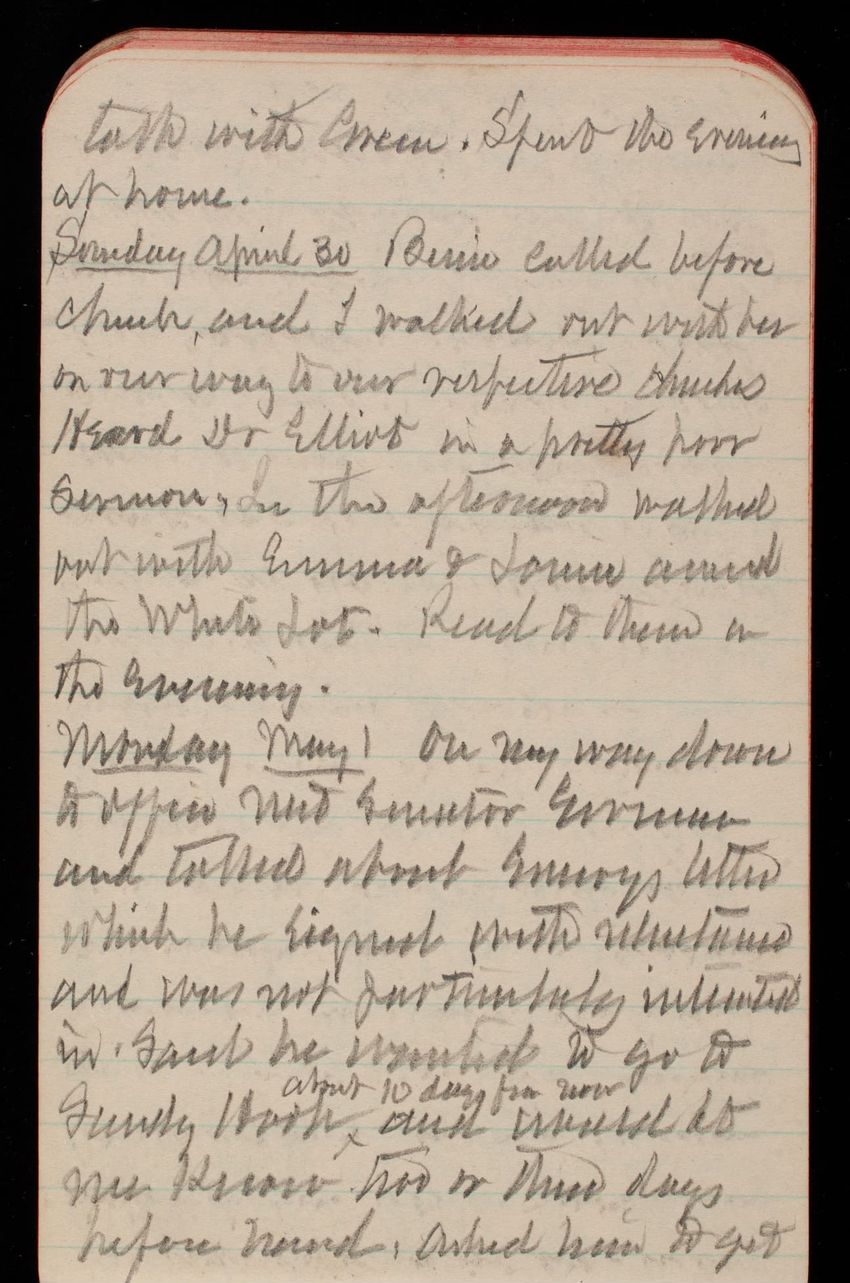 talk with Green. Spent the evening
at home.
Sunday April 30 Bessie called before
church, and I walked out with her
on our way to our respective churches
Heard Dr Elliot in a pretty poor
sermon, In the afternoon walked
out with Emma & Louise around
the White Lot. Read to them in
the evening.
Monday May 1 On my way down
to office met Senator Gorman
and talked about Emorys letter
which he signed with reluctance
and was not particularly interested
in. Said he wanted to go to
about 10 days from now
Sandy Hook, and would let
me know two or three days
before hand. Asked him to get